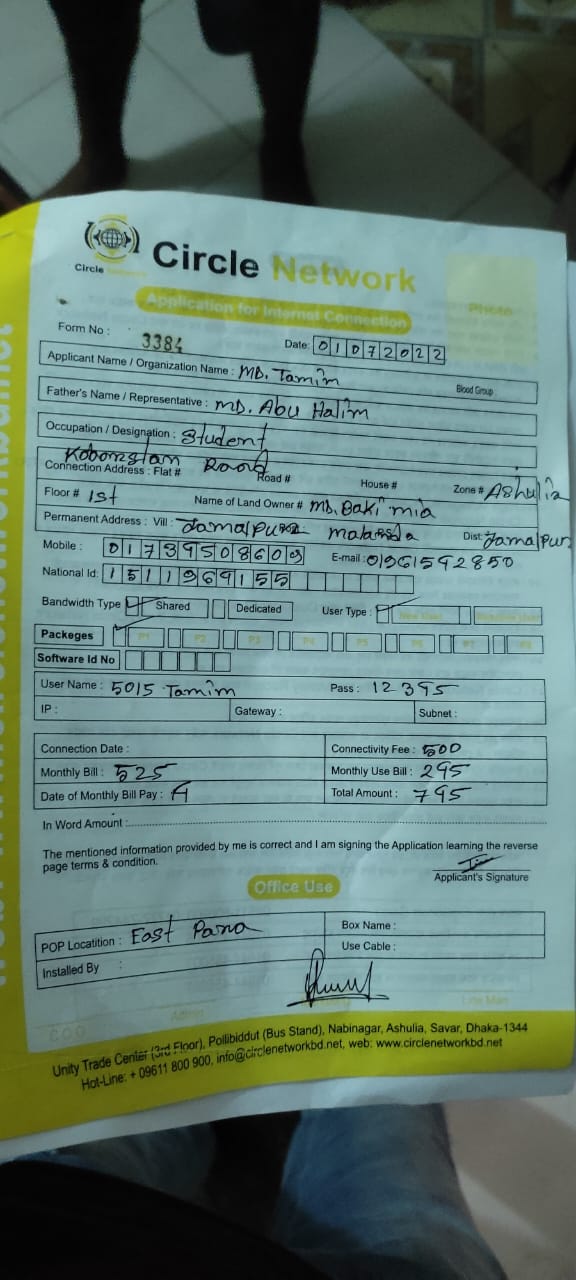 Circle
Circle Network
Application for Internet Connection
Photo
Form No : 3384
Date: 01072022
Applicant Name / Organization Name : MD. Tamim
Blood Group
Father's Name / Representative : MD. Abu Halim
Occupation / Designation : Student
Connection Address : Flat # Road Road # House # Zone # Ashulia
Floor # 1st Name of Land Owner # MD. Baki mia
Permanent Address : Vill : Jamalpur Dist: Jamalpur
Mobile : 01739508609 E-mail : 01961592850
National Id: 1511969155
Bandwidth Type Shared Dedicated User Type : New User
Packeges P1 P2 P3 P4 P5 P6 P7 P8
Software Id No
User Name : 5015 Tamim Pass : 12395
IP : Gateway : Subnet :
Connection Date : Connectivity Fee : 500
Monthly Bill : 525 Monthly Use Bill : 295
Date of Monthly Bill Pay : Total Amount : 795
In Word Amount :
The mentioned information provided by me is correct and I am signing the Application learning the reverse
page terms & condition.
Applicant's Signature
Office Use
POP Locatition : East Para Box Name :
Installed By : Use Cable :
C O O Admin Line Man
Unity Trade Center (3rd Floor), Pollibiddut (Bus Stand), Nabinagar, Ashulia, Savar, Dhaka-1344
Hot-Line: + 09611 800 900, info@circlenetworkbd.net, web: www.circlenetworkbd.net